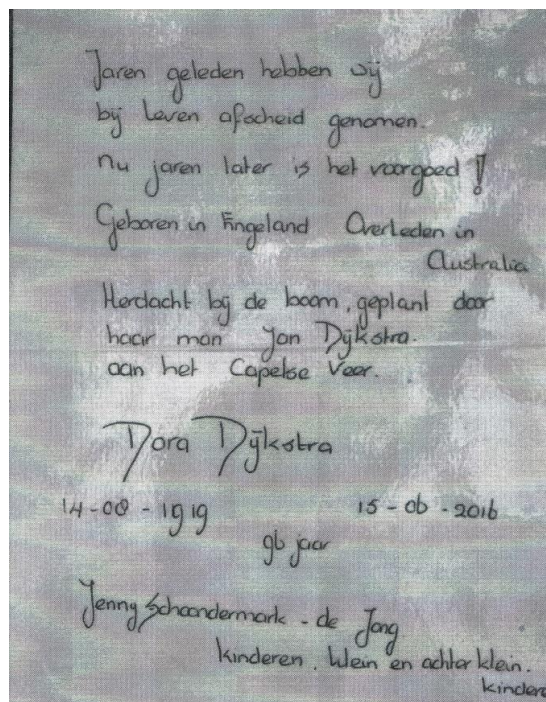 Jaren geleden hebben wij
bij leven afscheid genomen.
nu jaren later is het voorgoed!
Geboren in Engeland Overleden in
Australia
Herdacht bij de boom, geplant door
haar man Jan Dijkstra.
aan het Capelse Veer.
Dora Dijkstra
14-08-1919 15-06-2016
96 jaar
Jenny Schoondermark - de Jong
kinderen, klein en achter klein.
kindere